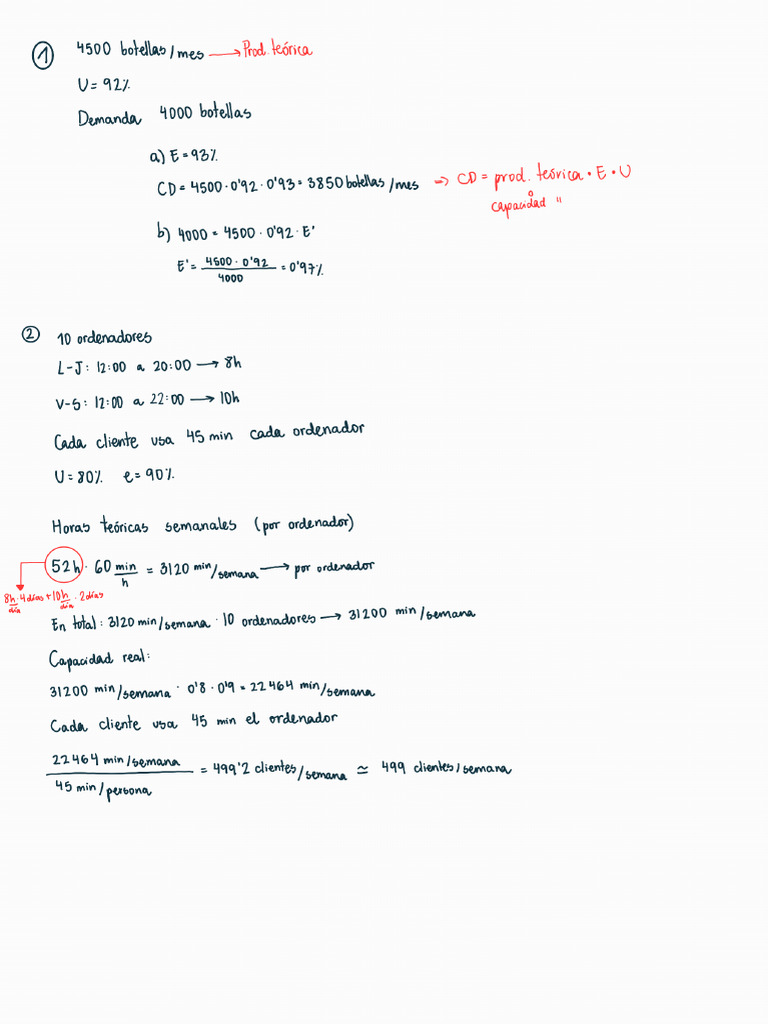 ① 4500 botellas/mes → Prod. teórica
U = 92%
Demanda 4000 botellas
a) E = 93%
CD = 4500 · 0'92 · 0'93 = 3850 botellas/mes => CD = prod. teórica · E · U
o
capacidad "
b) 4000 = 4500 · 0'92 · E'
E' = 4500 · 0'92 / 4000 = 0'97%
② 10 ordenadores
L-J: 12:00 a 20:00 → 8h
V-S: 12:00 a 22:00 → 10h
Cada cliente usa 45 min cada ordenador
U = 80% e = 90%
Horas teóricas semanales (por ordenador)
52h · 60 min/h = 3120 min/semana → por ordenador
8h/día · 4 días + 10h/día · 2 días
En total: 3120 min/semana · 10 ordenadores → 31200 min/semana
Capacidad real:
31200 min/semana · 0'8 · 0'9 = 22464 min/semana
Cada cliente usa 45 min el ordenador
22464 min/semana / 45 min/persona = 499'2 clientes/semana ≃ 499 clientes/semana